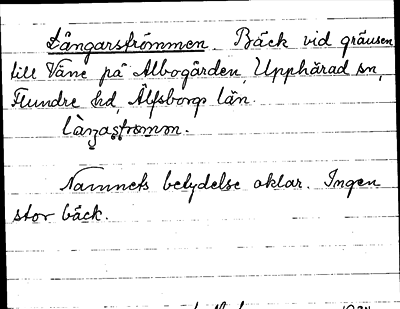 Långarsströmmen. Bäck vid gränsen
till Väne på Albogården, Upphärad sn,
Flundre hd, Älfsborgs län.
Namnets betydelse oklar. Ingen
stor bäck.